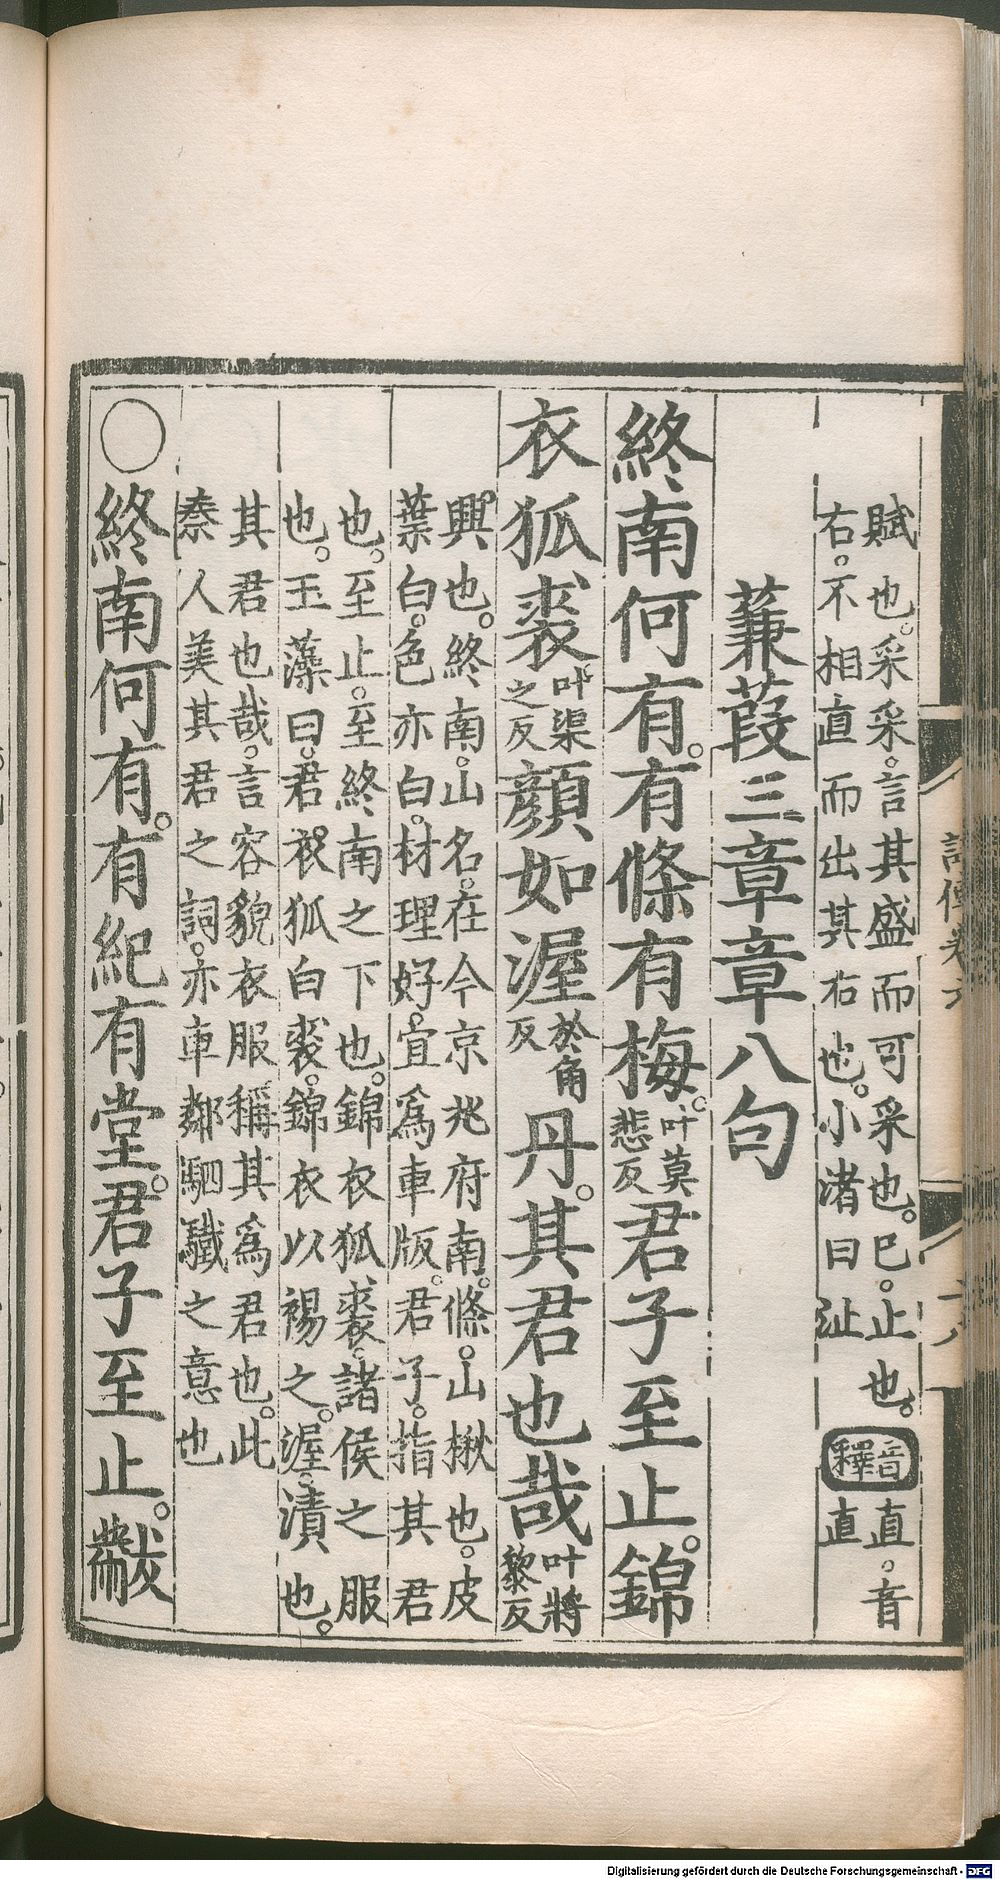 賦也。采采。言其盛而可采也。已。止也。
右。不相直而出其右也。小渚曰沚
音釋
直。音
直
蒹葭三章章八句
終南何有。有條有梅。叶莫悲反君子至止。錦
衣狐裘叶渠之反顏如渥於角反丹。其君也哉叶將黎反
興也。終南。山名。在今京兆府南。條。山楸也。皮
葉白。色亦白。材理好。宜爲車版。君子。指其君
也。至止。至終南之下也。錦衣狐裘。諸侯之服
也。玉藻曰。君衣狐白裘。錦衣以裼之。渥。漬也。
其君也哉。言容貌衣服稱其爲君也。此
秦人美其君之詞。亦車鄰駟驖之意也
○終南何有。有紀有堂。君子至止。黻
詩傳卷六
Digitalisierung gefördert durch die Deutsche Forschungsgemeinschaft - DFG